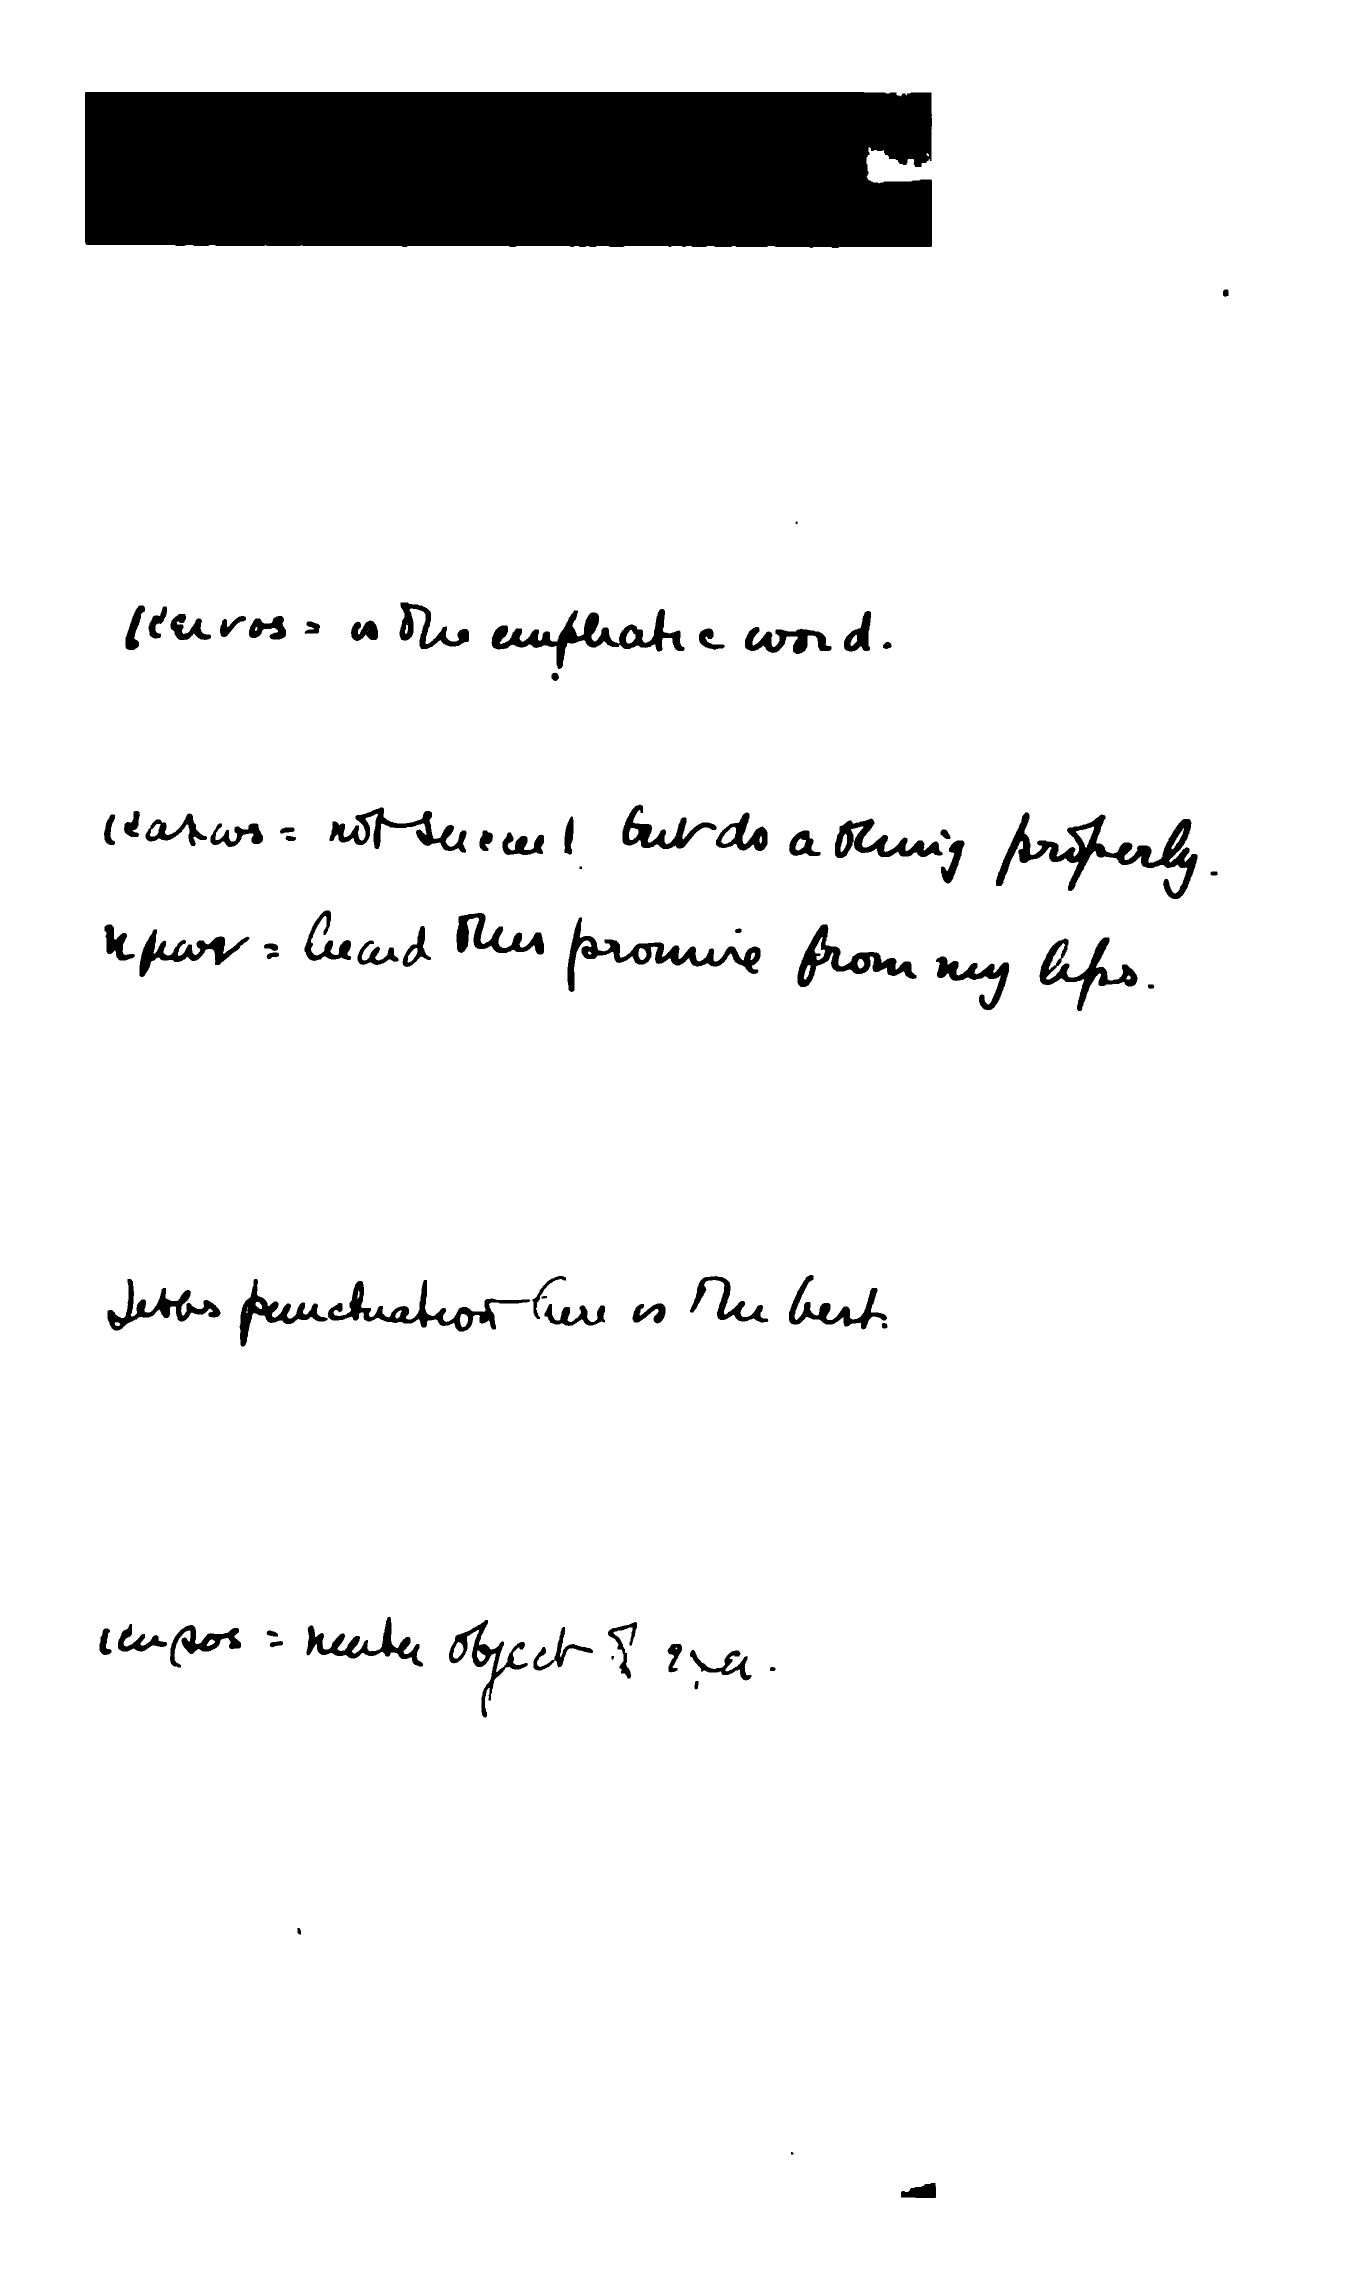 κεινος = is the emphatic word.
not succeed but do a thing properly.
ημων = heard this promise from my lips.
Jebbs punctuation here is the best.
καιρος = neuter object of